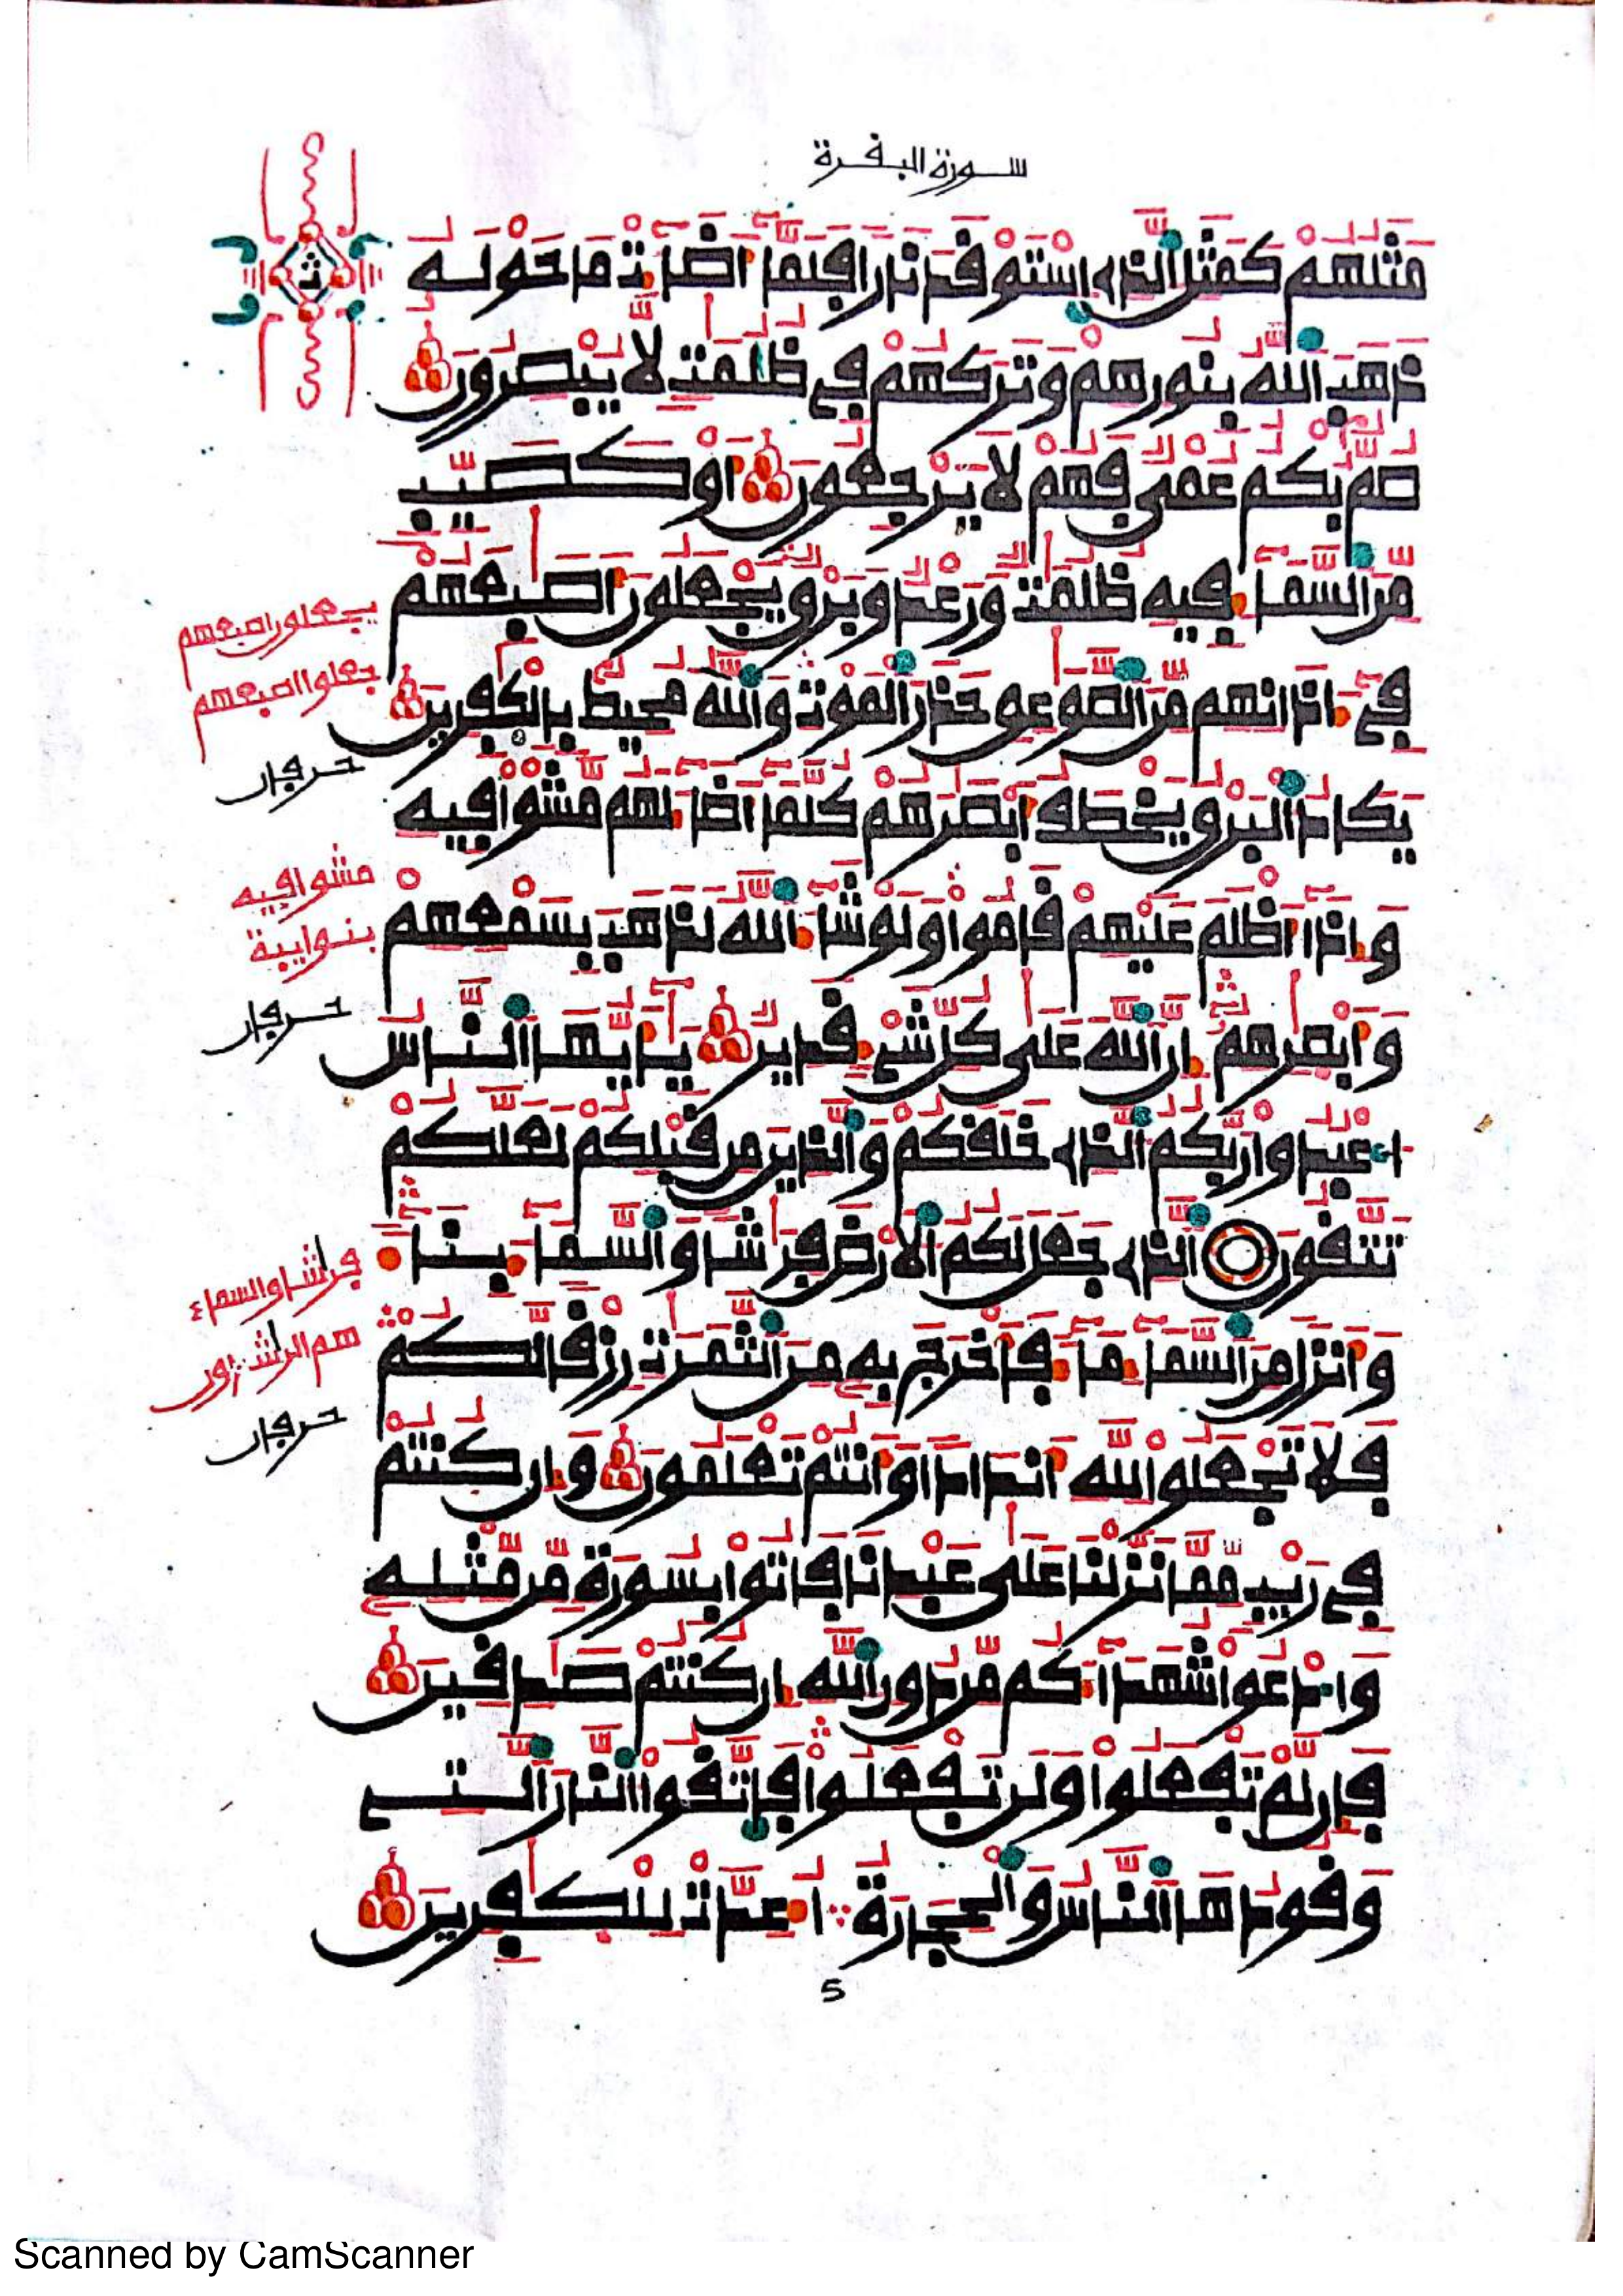 سورة البقرة
مَثَلُهُمْ كَمَثَلِ الَّذِي اسْتَوْقَدَ نَارًا فَلَمَّا أَضَاءَتْ مَا حَوْلَهُ
ذَهَبَ اللَّهُ بِنُورِهِمْ وَتَرَكَهُمْ فِي ظُلُمَٰتٍ لَّا يُبْصِرُونَ
صُمٌّ بُكْمٌ عُمْيٌ فَهُمْ لَا يَرْجِعُونَ أَوْ كَصَيِّبٍ
مِّنَ السَّمَاءِ فِيهِ ظُلُمَٰتٌ وَرَعْدٌ وَبَرْقٌ يَجْعَلُونَ أَصَٰبِعَهُمْ
فِي ءَاذَانِهِم مِّنَ الصَّوَٰعِقِ حَذَرَ الْمَوْتِ وَاللَّهُ مُحِيطٌ بِالْكَٰفِرِينَ
يَكَادُ الْبَرْقُ يَخْطَفُ أَبْصَٰرَهُمْ كُلَّمَا أَضَاءَ لَهُم مَّشَوْا فِيهِ
وَإِذَا أَظْلَمَ عَلَيْهِمْ قَامُوا وَلَوْ شَاءَ اللَّهُ لَذَهَبَ بِسَمْعِهِمْ
وَأَبْصَٰرِهِمْ إِنَّ اللَّهَ عَلَىٰ كُلِّ شَيْءٍ قَدِيرٌ يَا أَيُّهَا النَّاسُ
اعْبُدُوا رَبَّكُمُ الَّذِي خَلَقَكُمْ وَالَّذِينَ مِن قَبْلِكُمْ لَعَلَّكُمْ
تَتَّقُونَ الَّذِي جَعَلَ لَكُمُ الْأَرْضَ فِرَٰشًا وَالسَّمَاءَ بِنَاءً
وَأَنزَلَ مِنَ السَّمَاءِ مَاءً فَأَخْرَجَ بِهِ مِنَ الثَّمَرَٰتِ رِزْقًا لَّكُمْ
فَلَا تَجْعَلُوا لِلَّهِ أَندَادًا وَأَنتُمْ تَعْلَمُونَ وَإِن كُنتُمْ
فِي رَيْبٍ مِّمَّا نَزَّلْنَا عَلَىٰ عَبْدِنَا فَأْتُوا بِسُورَةٍ مِّن مِّثْلِهِ
وَادْعُوا شُهَدَاءَكُم مِّن دُونِ اللَّهِ إِن كُنتُمْ صَٰدِقِينَ
فَإِن لَّمْ تَفْعَلُوا وَلَن تَفْعَلُوا فَاتَّقُوا النَّارَ الَّتِي
وَقُودُهَا النَّاسُ وَالْحِجَارَةُ أُعِدَّتْ لِلْكَٰفِرِينَ
5
ث
يجعلون اصبعهم
جعلوا اصبعهم
حرفان
مشوا فيه
حرفان
فرشا والسماء
حرفان
Scanned by CamScanner